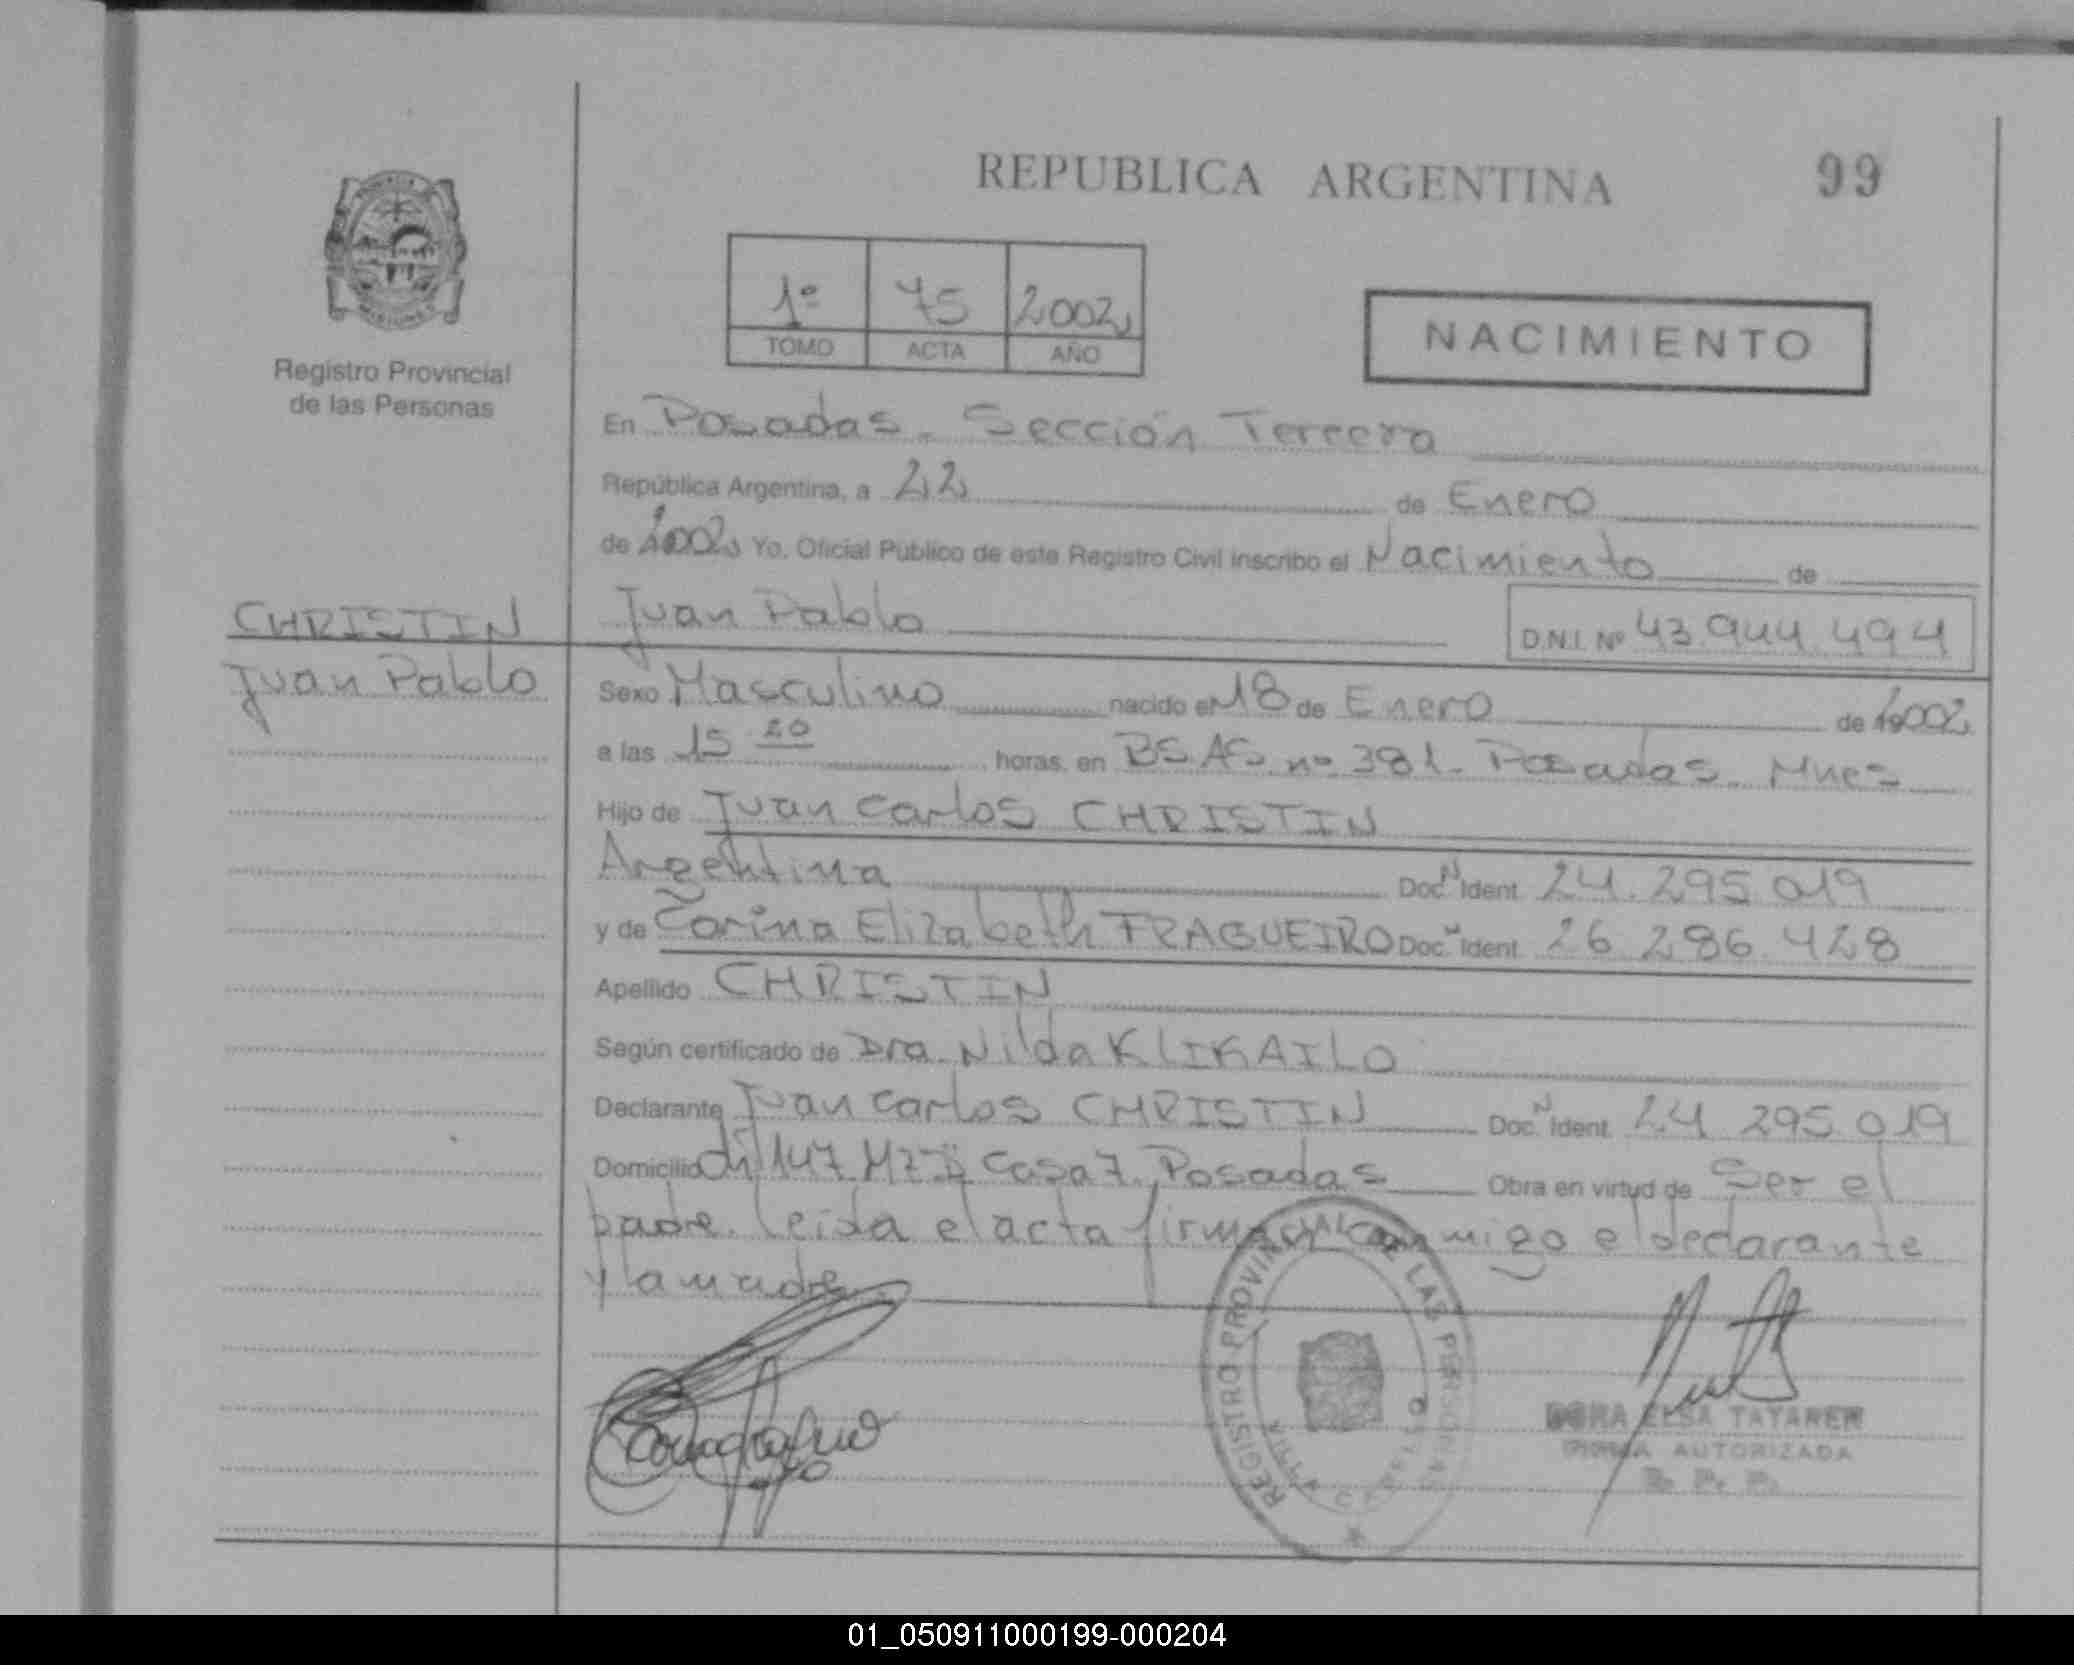 REPUBLICA ARGENTINA
99
1º 75 2002
TOMO ACTA AÑO
NACIMIENTO
Registro Provincial
de las Personas
En Posadas - Sección Tercera
República Argentina, a 22 de Enero
de 2002 Yo, Oficial Público de este Registro Civil inscribo el Nacimiento de
CHRISTIN
Juan Pablo
Juan Pablo
D.N.I. Nº 43.944.494
Sexo Masculino nacido el 18 de Enero de 2002
a las 15 20 horas, en BS AS nº 381 - Posadas - Mnes
Hijo de Juan Carlos CHRISTIN
Argentina Doc. Ident. 24.295.019
y de Elizabeth FRAGUEIRO Doc. Ident. 26.286.428
Apellido CHRISTIN
Según certificado de Dra. Nilda KLIKAILO
Declarante Juan Carlos CHRISTIN Doc. Ident. 24 295.019
Domicilio Ch 147 Casa 7. Posadas Obra en virtud de Ser el
padre. Leída el acta firma conmigo el declarante
y la madre.
REGISTRO PROVINCIAL DE LAS PERSONAS
DORA ELSA TATAREN
FIRMA AUTORIZADA
R. P. P.
01_050911000199-000204